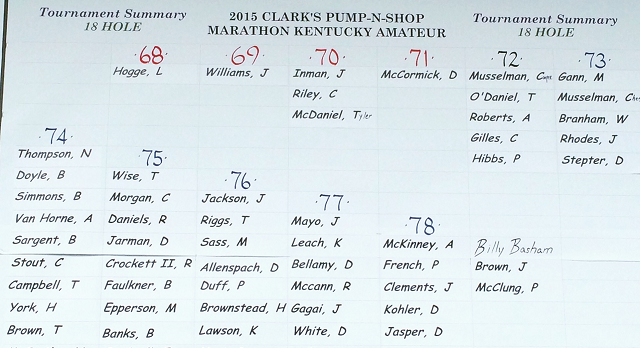 Tournament Summary
18 HOLE
2015 CLARK'S PUMP-N-SHOP
MARATHON KENTUCKY AMATEUR
Tournament Summary
18 HOLE
68
Hogge, L
69
Williams, J
70
Inman, J
Riley, C
McDaniel, Tyler
71
McCormick, D
72
Musselman,
O'Daniel, T
Roberts, A
Gilles, C
Hibbs, P
73
Gann, M
Musselman,
Branham, W
Rhodes, J
Stepter, D
74
Thompson, N
Doyle, B
Simmons, B
Van Horne, A
Sargent, B
Stout, C
Campbell, T
York, H
Brown, T
75
Wise, T
Morgan, C
Daniels, R
Jarman, D
Crockett II, R
Faulkner, B
Epperson, M
Banks, B
76
Jackson, J
Riggs, T
Sass, M
Allenspach, D
Duff, P
Brownstead, H
Lawson, K
77
Mayo, J
Leach, K
Bellamy, D
Mccann, R
Gagai, J
White, D
78
McKinney, A
French, P
Clements, J
Kohler, D
Jasper, D
Billy Basham
Brown, J
McClung, P